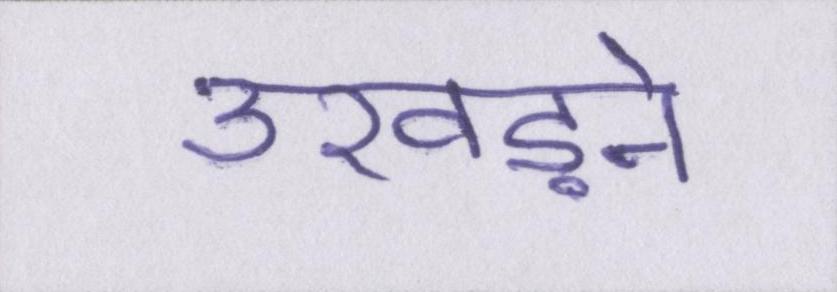 उखड़ने